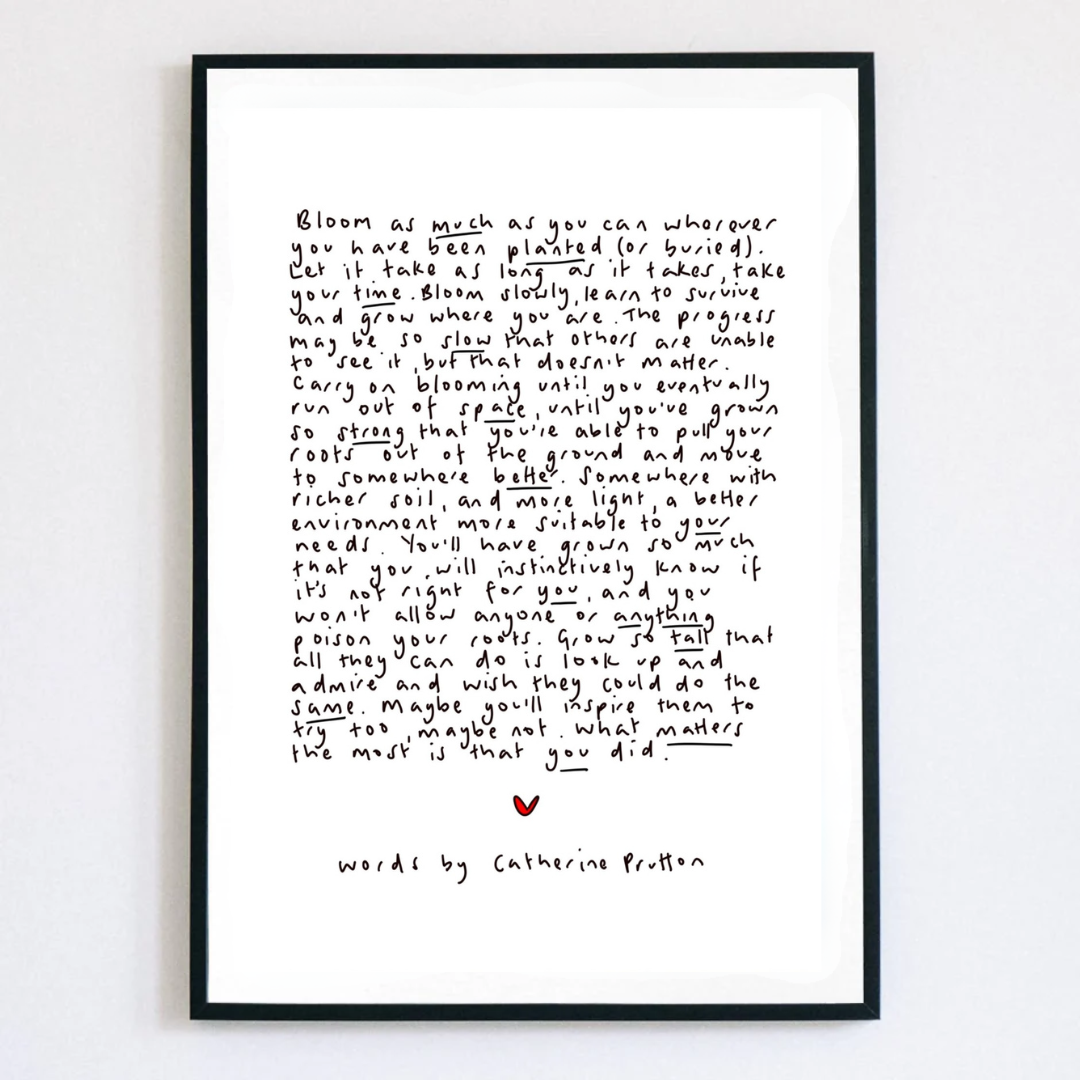 Bloom as much as you can wherever
you have been planted (or buried).
Let it take as long as it takes, take
your time. Bloom slowly, learn to survive
and grow where you are. The progress
may be so slow that others are unable
to see it, but that doesn't matter.
Carry on blooming until you eventually
run out of space, until you've grown
so strong that you're able to pull your
roots out of the ground and move
to somewhere better. Somewhere with
richer soil, and more light, a better
environment more suitable to your
needs. You'll have grown so much
that you will instinctively know if
it's not right for you, and you
won't allow anyone or anything
poison your roots. Grow so tall that
all they can do is look up and
admire and wish they could do the
same. Maybe you'll inspire them to
try too, maybe not. What matters
the most is that you did.
words by Catherine Prutton